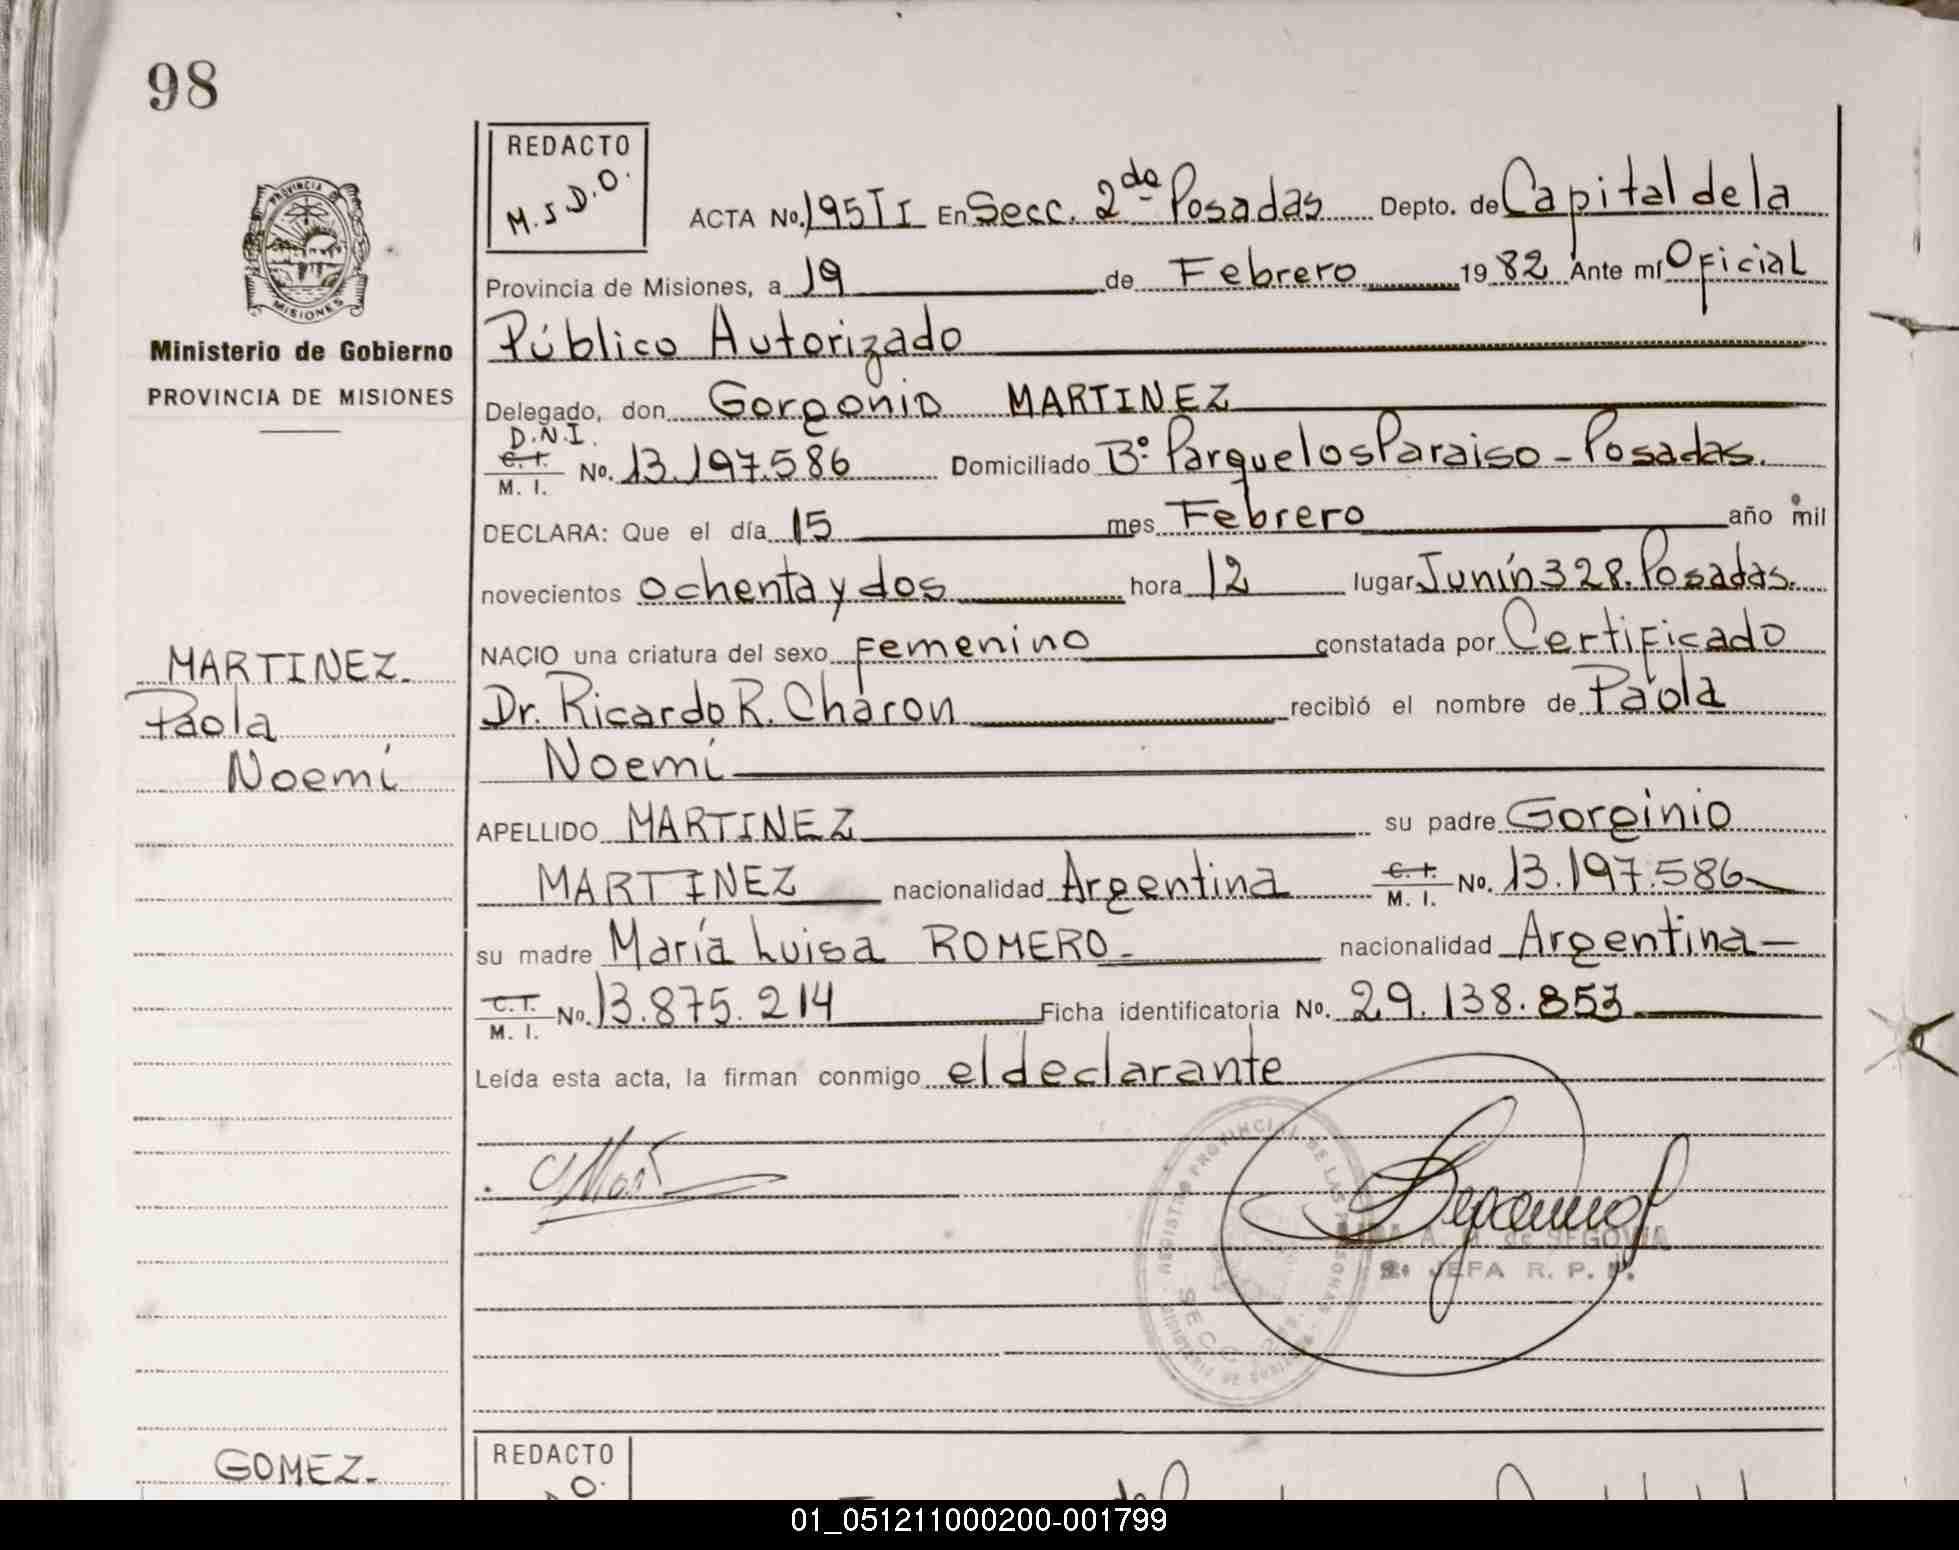 98
REDACTO
M.S.D.O.
ACTA No. 195 TI En Secc. 2da Posadas Depto. de Capital de la
Provincia de Misiones, a 19 de Febrero 1982 Ante mí Oficial
Público Autorizado
Delegado, don Gorgonio MARTINEZ
D.N.I.
C. I.
M. I. No. 13.197.586 Domiciliado Bº Parque los Paraiso - Posadas.
DECLARA: Que el día 15 mes Febrero año mil
novecientos ochenta y dos hora 12 lugar Junín 328. Posadas.
NACIO una criatura del sexo femenino constatada por Certificado
Dr. Ricardo R. Charon recibió el nombre de Paola
Noemí
APELLIDO MARTINEZ su padre Gorginio
MARTINEZ nacionalidad Argentina C. I. M. I. No. 13.197.586
su madre María Luisa ROMERO nacionalidad Argentina
C. I. M. I. No. 13.875.214 Ficha identificatoria No. 29.138.853
Leída esta acta, la firman conmigo el declarante
PROVINCIA
MISIONES
Ministerio de Gobierno
PROVINCIA DE MISIONES
MARTINEZ.
Paola
Noemí
REGISTRO PROVINCIAL DE LAS PERSONAS
SECC.
A. de SEGOVIA
2ª JEFA R. P. P.
GOMEZ.
REDACTO
01_051211000200-001799